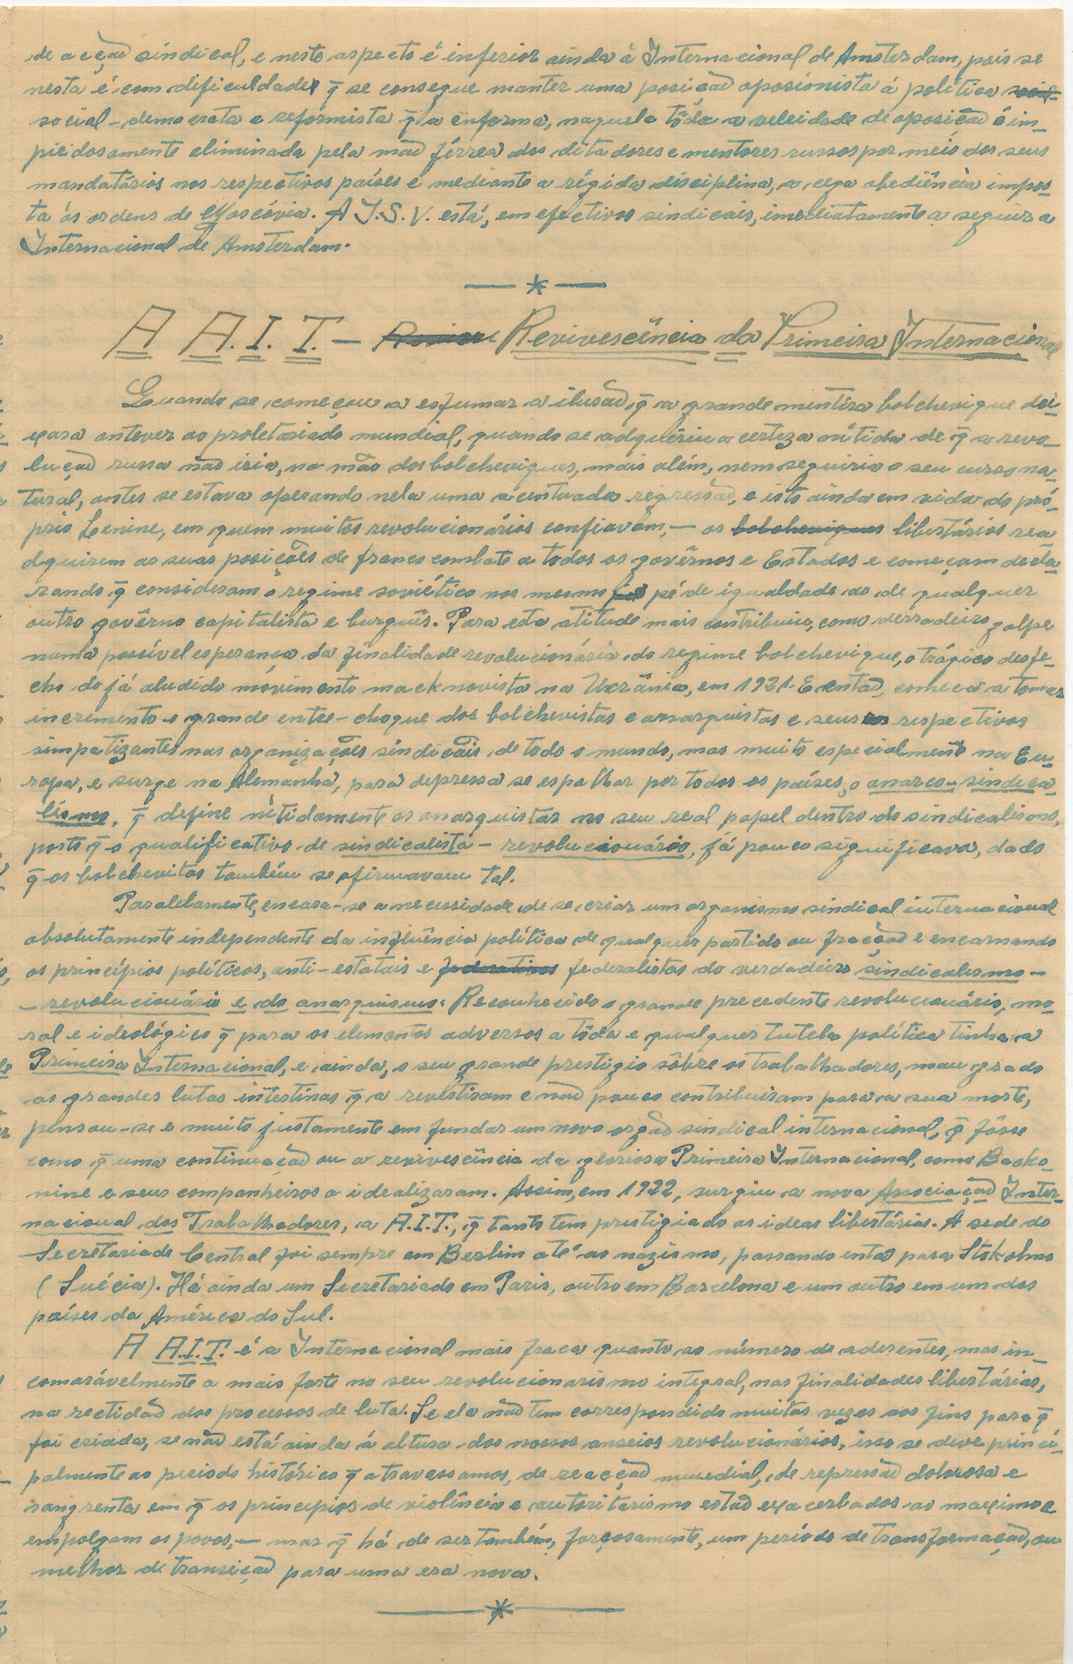 de acção sindical, e neste aspecto é inferior ainda à Internacional de Amsterdam, pois se
nesta é com dificuldades q̃ se consegue manter uma posição oposionista á política
social-democrata e reformista q̃ a enforma, naquela tôda a veleidade de oposição é im-
piedosamente eliminada pela mão férrea dos ditadores e mentores russos por meio dos seus
mandatários nos respectivos países e mediante a rígida disciplina, a cega obediência impos-
ta ás ordens de Moscóvia. A I.S.V. está, em efectivos sindicais, imediatamente a seguir a
Internacional de Amsterdam.
A A.I.T. — Revivescência da Primeira Internacional
Quando se começou a esfumar a ilusão q̃ a grande mentira bolchevique dei-
xara antever ao proletariado mundial, quando se adquiriu a certeza nítida de q̃ a revo-
lução russa não iria, na mão dos bolcheviques, mais além, nem seguiria o seu curso na-
tural, antes se estava operando nela uma acentuada regressão, e isto ainda em vida do pró-
prio Lenine, em quem muitos revolucionários confiavam, — os bolcheviques libertários rea-
dquirem as suas posições de franco combate a todos os govêrnos e Estados e começam decla-
rando q̃ consideram o regime soviético no mesmo pé de igualdade ao de qualquer
outro govêrno capitalista e burguês. Para esta atitude mais contribuiu, como derradeiro golpe
numa possível esperança da finalidade revolucionária do regime bolchevique, o trágico desfe-
cho do já aludido movimento macknovista na Ucrânia, em 1921. E então, começa a tomar
incremento o grande entre-choque dos bolchevistas e anarquistas e seus respectivos
simpatizantes nas organizações sindicais de todo o mundo, mas muito especialmente na Eu-
ropa, e surge na Alemanha, para depressa se espalhar por todos os países, o anarco-sindica-
lismo, q̃ define nitidamente os anarquistas no seu real papel dentro do sindicalismo,
posto q̃ o qualificativo de sindicalista-revolucionário, já pouco significava, dado
q̃ os bolchevistas também se afirmavam tal.
Paralelamente, encara-se a necessidade de se criar um organismo sindical internacional
absolutamente independente da influência política de qualquer partido ou fracção e encarnando
os princípios políticos, anti-estatais e federativos federalistas do verdadeiro sindicalismo-
-revolucionário e do anarquismo. Reconhecido o grande precedente revolucionário, mo-
ral e ideológico q̃ para os elementos adversos a tôda e qualquer tutela política tinha a
Primeira Internacional, e ainda, o seu grande prestígio sôbre os trabalhadores, mau grado
as grandes lutas intestinas q̃ a revestiram e não pouco contribuiram para a sua morte,
pensou-se e muito justamente em fundar um novo orgão sindical internacional, q̃ fôsse
como q̃ uma continuação ou a revivescência da gloriosa Primeira Internacional, como Backo-
nine e seus companheiros a idealizaram. Assim, em 1922, surgiu a nova Associação Inter-
nacional dos Trabalhadores, a A.I.T., q̃ tanto tem prestigiado as ideas libertárias. A sede do
Secretariado Central foi sempre em Berlim até ao nazismo, passando então para Stokolmo
(Suécia). Há ainda um Secretariado em Paris, outro em Barcelona e um outro em um dos
países da América do Sul.
A A.I.T. é a Internacional mais fraca quanto ao número de aderentes, mas in-
comarávelmente a mais forte no seu revolucionarismo integral, nas finalidades libertárias,
na rectidão dos processos de luta. Se ela não tem correspondido muitas vezes aos fins para q̃
foi criada, se não está ainda á altura dos nossos anseios revolucionários, isso se deve princi-
palmente ao período histórico q̃ atravessamos, de reacção mundial, de repressão dolorosa e
sangrenta em q̃ os princípios de violência e autoritarismo estão exacerbados ao máximo e
empolgam os povos, — mas q̃ há de ser também, forçosamente, um período de transformação, ou
melhor de transição para uma era nova.